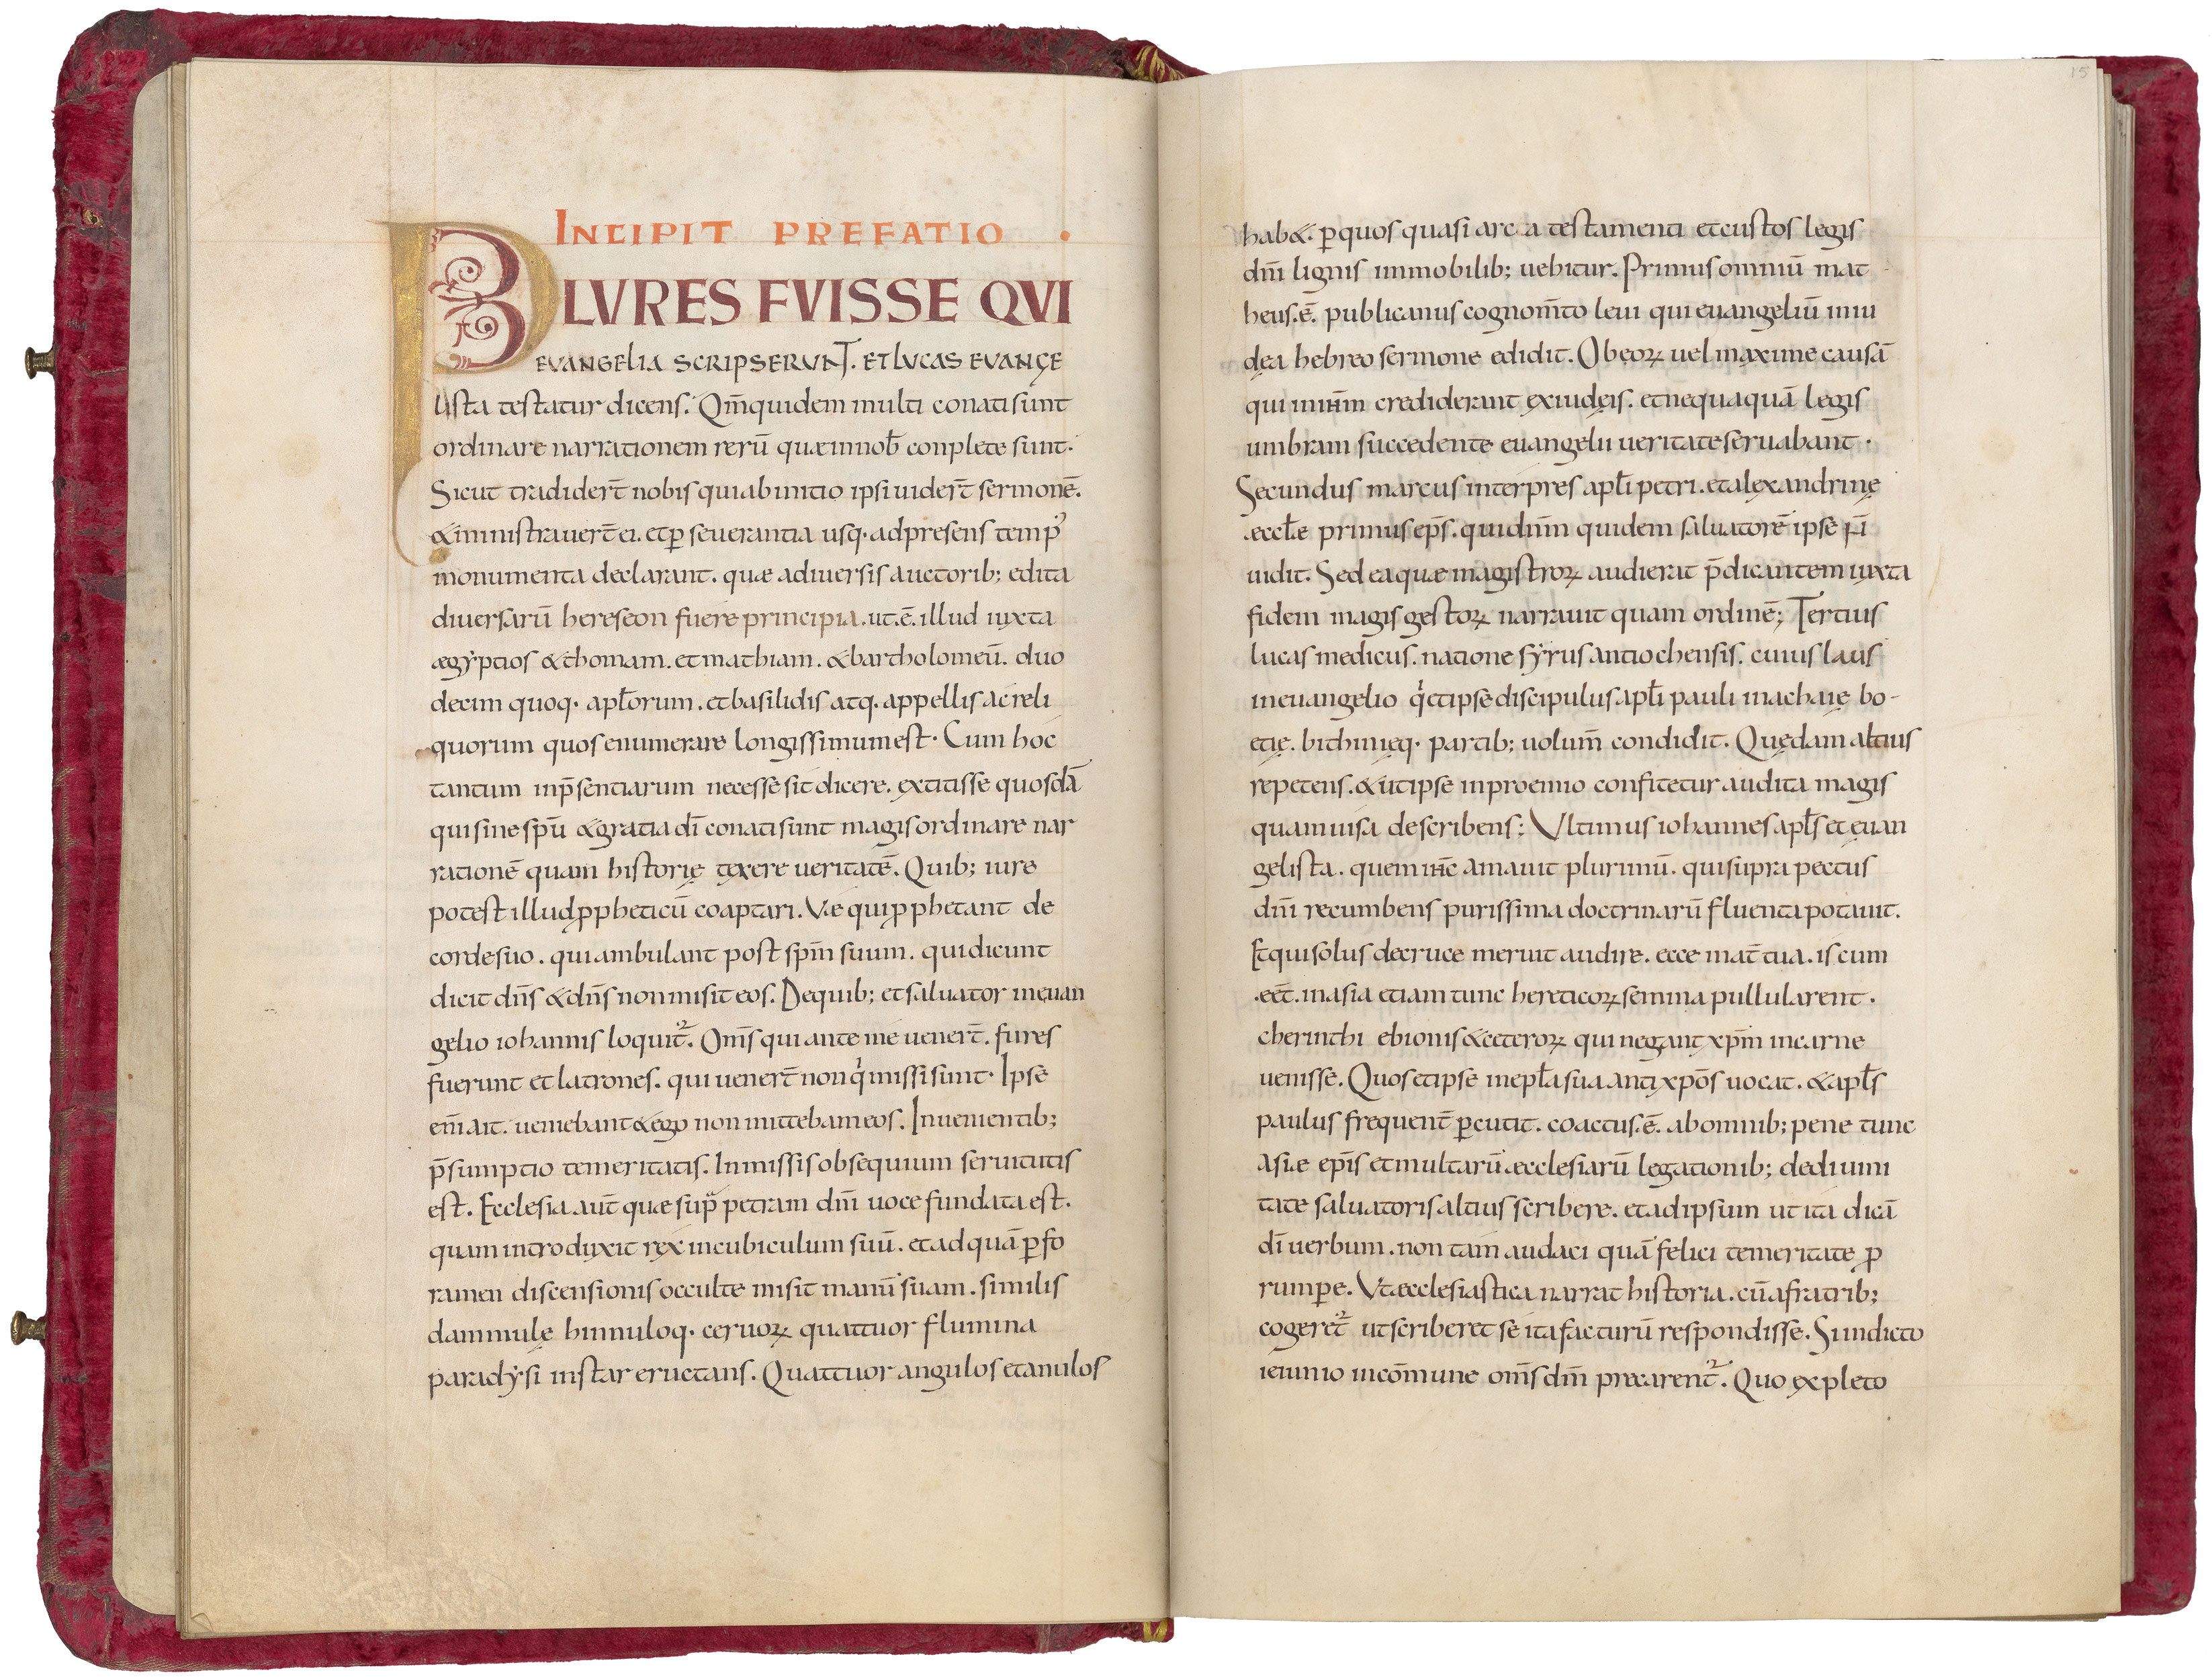 INCIPIT PREFATIO .
PLVRES FVISSE QVI
EVANGELIA SCRIPSERUNT. ET LVCAS EVANGE
lista testatur dicens. Qm̄quidem multi conati sunt
ordinare narrationem rerū quæ innob̄ conplete sunt.
Sicut tradider̄t nobis qui ab initio ipsi uider̄t sermonē.
& ministrauer̄t ei. et ꝑseuerantia usq. ad presens temp᾿
monumenta declarant. quæ a diuersis auctorib; edita
diuersarū hereseon fuere principia. ut .ē. illud iuxta
ægẏptios & thomam. et mathiam. & bartholomeū. duo
decim quoq. apl̄orum. et basilidis atq. appellis ac reli
quorum quos enumerare longissimum est. Cum hoc
tantum inp̄sentiarum necesse sit dicere. extitisse quosdā
qui sine sp̄u & gratia dī conati sunt magis ordinare nar
rationē quam historię texere ueritatē. Quib; iure
potest illud ꝓpheticū coaptari. Væ qui ꝓphetant de
corde suo. qui ambulant post sp̄m suum. qui dicunt
dicit dn̄s & dn̄s non misit eos. De quib; et saluator in euan
gelio iohannis loquit᷑. Om̄s qui ante me uener̄t. fures
fuerunt et latrones. qui uener̄t non qͥ missi sunt. Ipse
em̄ ait. ueniebant & ego non mittebam eos. In uenientib;
p̄sumptio temeritatis. In missis obsequium seruitutis
est. Ecclesia aut̄ quæ sup̄ petram dn̄i uoce fundata est.
quam introduxit rex in cubiculum suū. et ad quā ꝑ fo
ramen discensionis occulte misit manū suam. similis
dammulę hinnuloq. ceruoꝝ quattuor flumina
paradẏsi instar eructans. Quattuor angulos et anulos
15
hab&. ꝑ quos quasi arca testamenti et custos legis
dn̄i lignis immobilib; uehitur. Primus omniū mat
heus .ē. publicanus cognom̄to leui qui euangeliū in iu
dęa hebreo sermone edidit. Ob eoꝝ uel maxime causā
qui in ihm̄ crediderant ex iudęis. et nequaquā legis
umbram succedente euangelii ueritate seruabant.
Secundus marcus interpres apl̄i petri. et alexandrinę
eccl̄e primus ep̄s. qui dn̄m quidem saluatorē ipse n̄
uidit. Sed ea quæ magistroꝝ audierat p̄dicantem iuxta
fidem magis gestoꝝ narrauit quam ordinē; Tertius
lucas medicus. natione sẏrus antiochensis. cuius laus
in euangelio qͥ et ipse discipulus apl̄i pauli in achaię bo-
etię. bithinięq. partib; uolum̄ condidit. Quędam altius
repetens. & ut ipse in proemio confitetur audita magis
quam uisa describens; Vltimus iohannes apl̄s et euan
gelista. quem ih̄c amauit plurimū. qui supra pectus
dn̄i recumbens purissima doctrinarū fluenta potauit.
Et qui solus de cruce meruit audire. ecce mat̄ tua. is cum
.eēt. in asia etiam tunc hereticoꝝ semina pullularent.
cherinthi ebionis & ceteroꝝ qui negant xp̄m in carne
uenisse. Quos et ipse in epl̄a sua antixp̄os uocat. & apl̄s
paulus frequent̄ ꝑcutit. coactus .ē. ab omnib; pene tunc
asiæ ep̄is et multarū æcclesiarū legationib; de diuini
tate saluatoris altius scribere. et ad ipsum ut ita dicā
dī uerbum. non tam audaci quā felici temeritate ꝓ
rumꝑe. Vt æcclesiastica narrat historia. cū a fratrib;
cogeret᷑ ut scriberet se ita facturū respondisse. Si indicto
ieiunio in cōmune om̄s dm̄ precarent᷑. Quo expleto